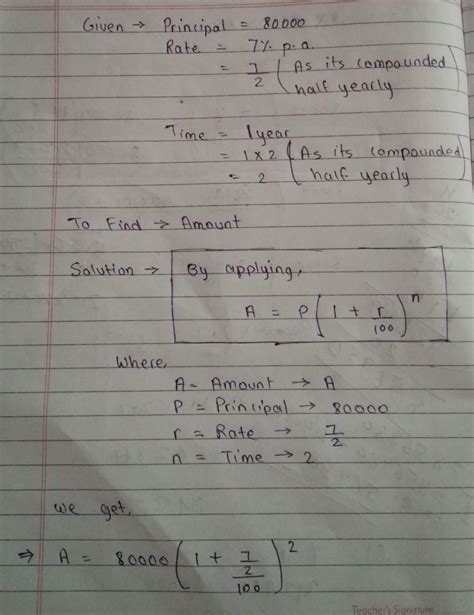 Given → Principal = 80000
Rate = 7% p.a.
= 7/2 ( As its compounded
half yearly
Time = 1 year
= 1 x 2 ( As its compounded
= 2 half yearly
To Find → Amount
Solution → By applying,
A = P ( 1 + r/100 )^n
Where,
A = Amount → A
P = Principal → 80000
r = Rate → 7/2
n = Time → 2
we get,
⇒ A = 80000 ( 1 + 7/2/100 )^2
Teacher's Signature